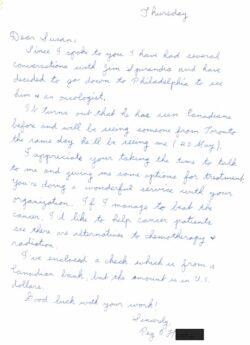 Thursday
Dear Susan:
Since I spoke to you I have had several
conversations with Jim and have
decided to go down to Philadelphia to see
him & an oncologist.
It turns out that he has seen Canadians
before and will be seeing someone from Toronto
the same day he'll be seeing me ( May).
I appreciate your taking the time to talk
to me and giving me some options for treatment
You're doing a wonderful service with your
organization. If I manage to beat the
cancer, I'd like to help cancer patients
see there are alternatives to chemotherapy &
radiation.
I've enclosed a check which is from a
Canadian bank, but the amount is in U.S.
dollars.
Good luck with your work!
Sincerely,